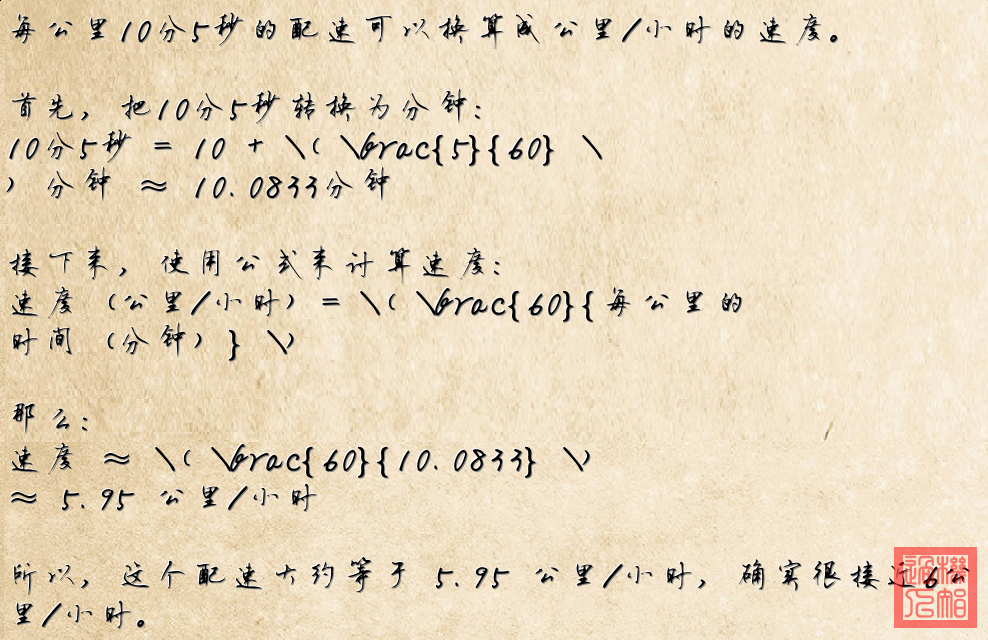 每公里10分5秒的配速可以换算成公里/小时的速度。
首先，把10分5秒转换为分钟：
10分5秒 = 10 + \( \frac{5}{60} \
) 分钟 ≈ 10.0833分钟
接下来，使用公式来计算速度：
速度（公里/小时）= \( \frac{60}{每公里的
时间（分钟）} \)
那么：
速度 ≈ \( \frac{60}{10.0833} \)
≈ 5.95 公里/小时
所以，这个配速大约等于 5.95 公里/小时，确实很接近6公
里/小时。